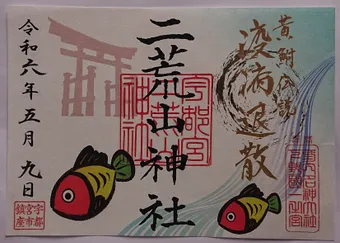 黄鮒伝説
疫病退散
二荒山神社
宇都宮
二荒山
神社
令和六年五月九日
宇都
宮市
鎮座